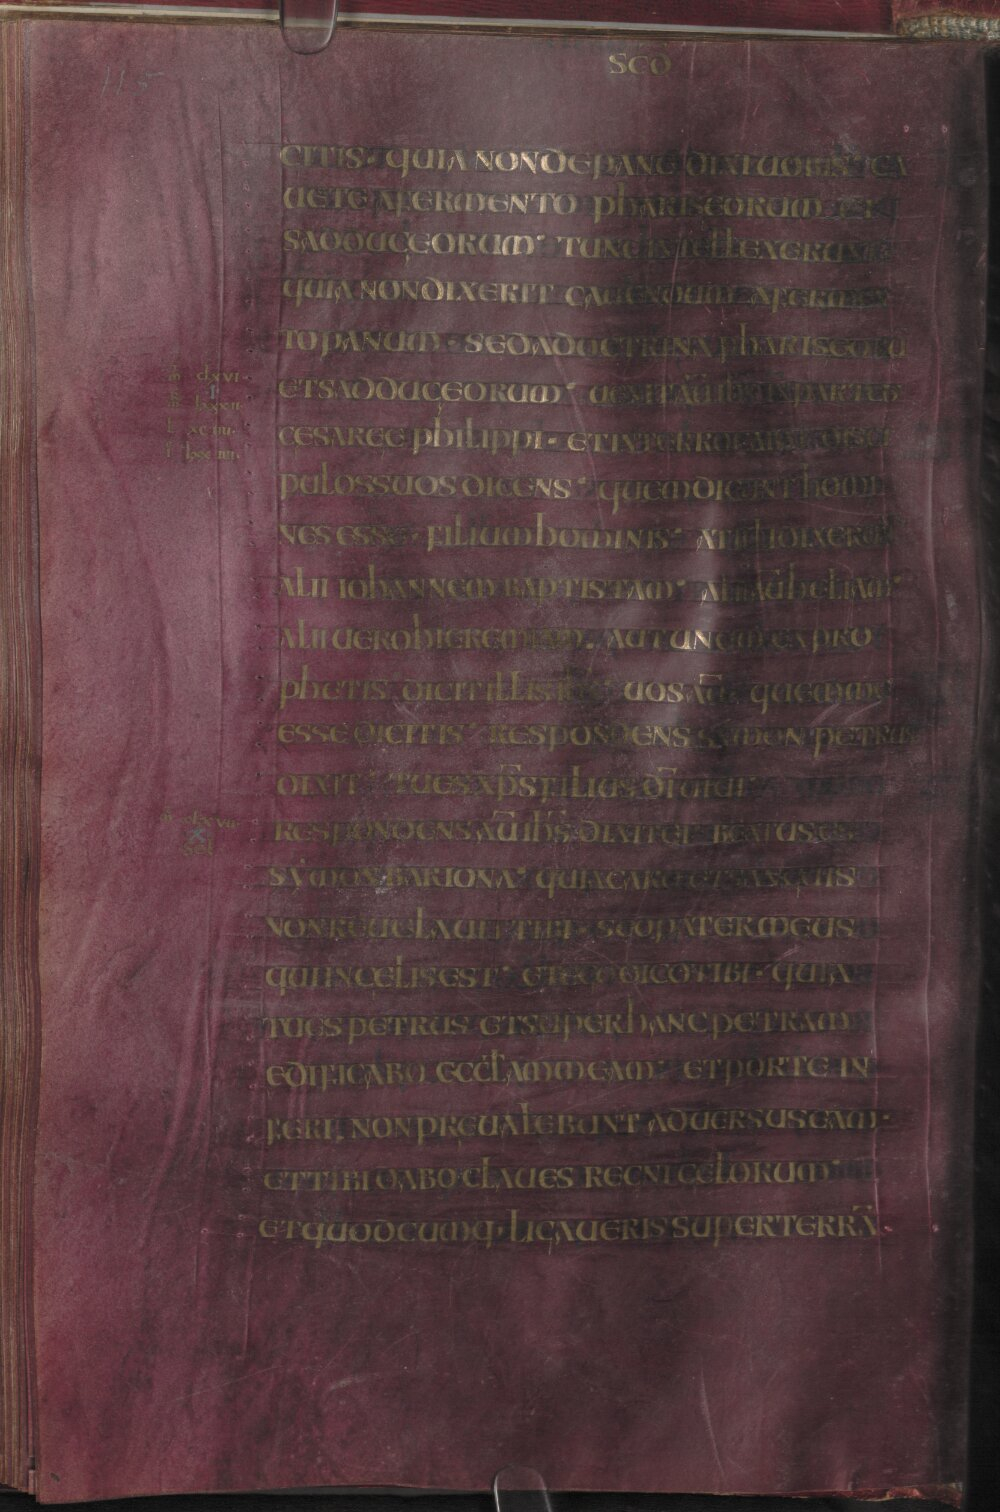 115
SCD̄
CITIS· QUIA NON DE PANE DIXI UOBIS CA
UETE A FERMENTO PHARISEORUM ET
SADDUCEORUM· TUNC INTELLEXERUNT
QUIA NON DIXERIT CAUENDUM A FERMEN
TO PANUM· SED A DOCTRINA PHARISEORU
ET SADDUCEORUM· UENIT AŪ IHS IN PARTES
CESAREE PHILIPPI· ET INTERROGABAT DISCI
PULOS SUOS DICENS· QUEM DICUNT HOMI
NES ESSE· FILIUM HOMINIS· AT ILLI DIXERUN
ALII IOHANNEM BAPTISTAM· ALII AŪ HELIAM·
ALII UERO HIEREMIAM· AUT UNUM EX PRO
PHETIS DICIT ILLIS IHS UOS AŪ QUEM ME
ESSE DICITIS RESPONDENS SYMON PETRUS
DIXIT· TU ES XP̄S FILIUS DĪ UIUI
RESPONDENS AŪ IHS DIXIT EI· BEATUS ES
SYMON BARIONA· QUIA CARO ET SANGUIS
NON REUELAUIT TIBI· SED PATER MEUS
QUI IN CELIS EST· ET EGO DICO TIBI· QUIA
TU ES PETRUS ET SUPER HANC PETRAM
EDIFICABO ECCLAM MEAM· ET PORTE IN
FERI NON PREUALEBUNT ADUERSUS EAM·
ET TIBI DABO CLAUES REGNI CELORUM·
ET QUODCUMQ· LIGAUERIS SUPER TERRĀ